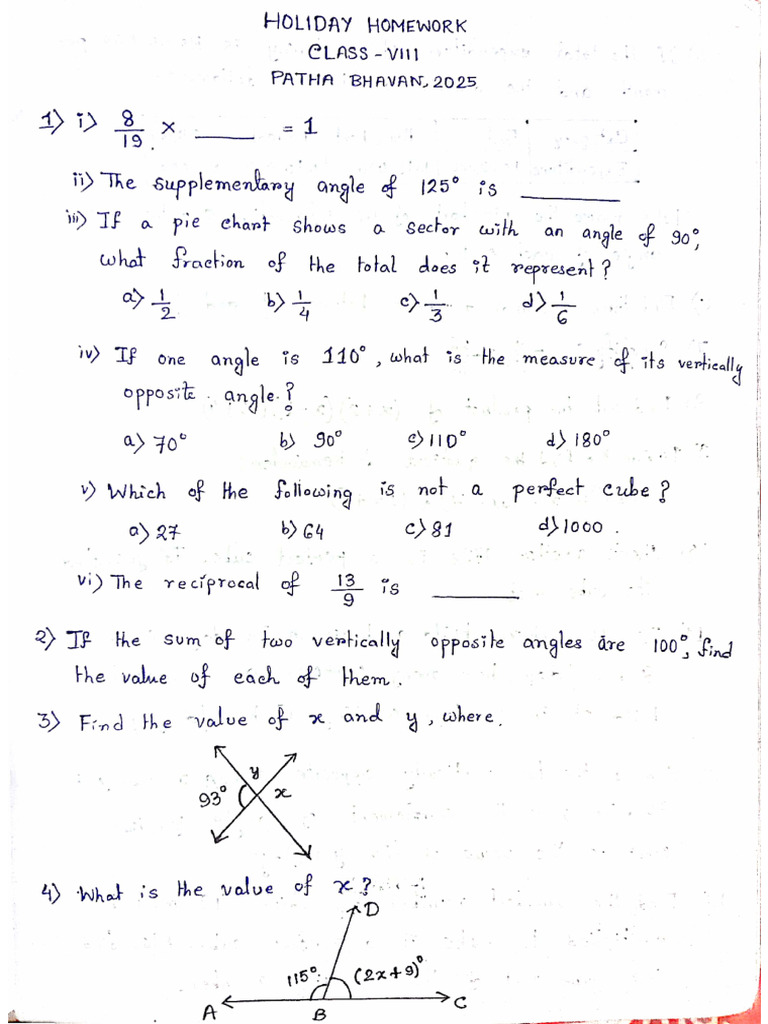 HOLIDAY HOMEWORK
CLASS - VIII
PATHA BHAVAN, 2025
1) i) 8/19 × ____ = 1
ii) The supplementary angle of 125° is ____
iii) If a pie chart shows a sector with an angle of 90°,
what fraction of the total does it represent?
a) 1/2 b) 1/4 c) 1/3 d) 1/6
iv) If one angle is 110°, what is the measure of its vertically
opposite angle?
a) 70° b) 90° c) 110° d) 180°
v) Which of the following is not a perfect cube?
a) 27 b) 64 c) 81 d) 1000.
vi) The reciprocal of 13/9 is ____
2) If the sum of two vertically opposite angles are 100°, find
the value of each of them.
3) Find the value of x and y, where.
y
93° x
4) What is the value of x?
D
115° (2x+9)°
A B C